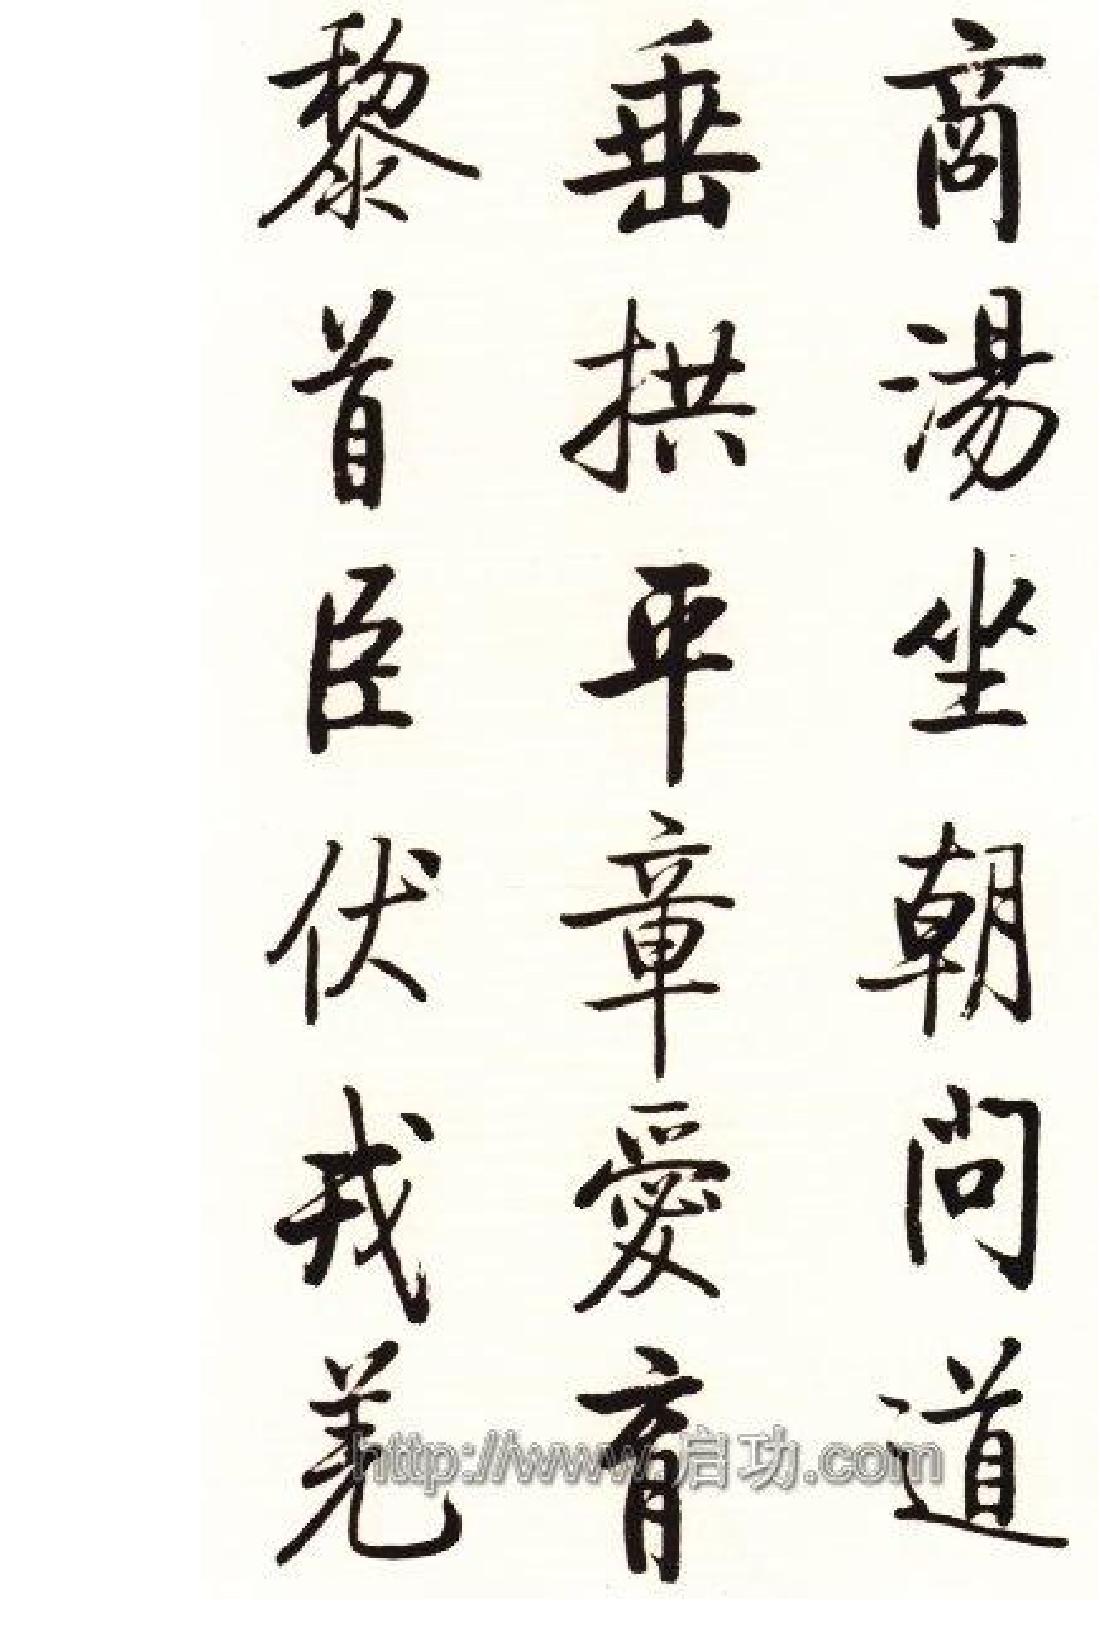 商湯坐朝問道
垂拱平章愛育
黎首臣伏戎羌
http://www.启功.com